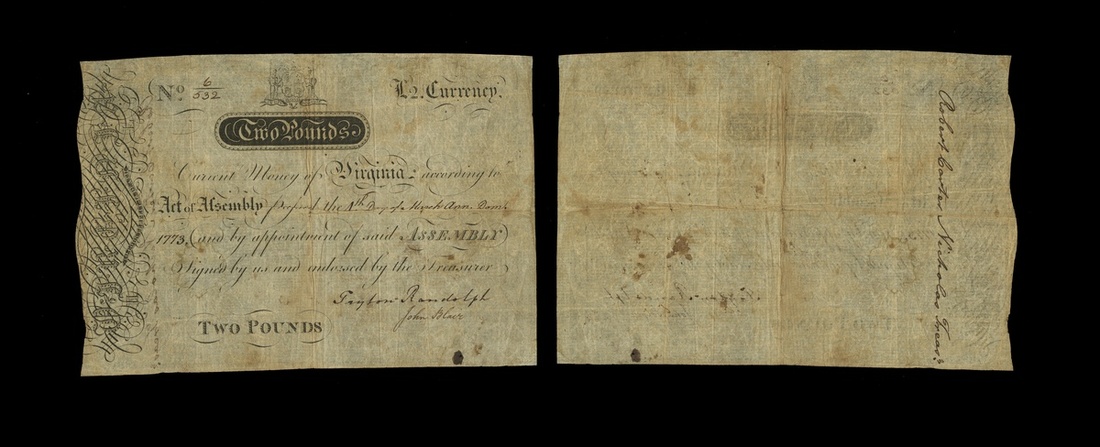 No. 6/532
£2. Currency.
Two Pounds
Current Money of Virginia according to
Act of Assembly passed the 4th Day of March Ann. Dom.
1773. (and by appointment of said ASSEMBLY)
Signed by us and endorsed by the Treasurer
Peyton Randolph
John Blair
TWO POUNDS
Robert Carter Nicholas Treasr.